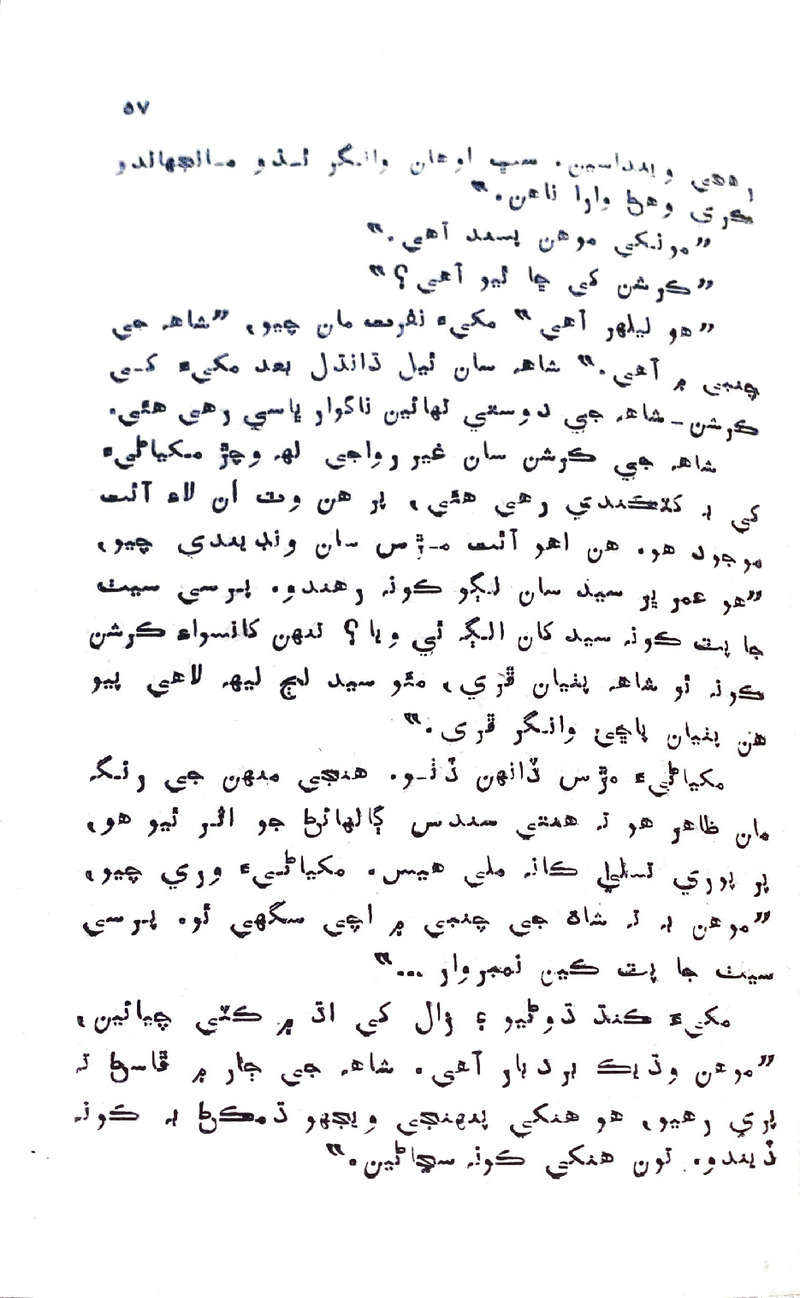 ٥٧
رهجي ويندا‌سين. سڀ اوهان وانگر ٿڌو مانجهاندو
ڪري وهڻ وارا ناهن.“
”مونکي موهن پسند آهي.“
”ڪرشن کي ڇا ٿيو آهي؟“
”هو ليلهر آهي“ مکيءَ نفرت مان چيو، ”شاهه جي
چنبي ۾ آهي.“ شاهه سان ٿيل ڏانڌل بعد مکيءَ کي
ڪرشن-شاهه جي دوستي تهائين ناگوار ڀاسي رهي هئي.
شاهه جي ڪرشن سان غير رواجي لهه وچڙ مکياڻيءَ
کي به کٽڪندي رهي هئي، پر هن وٽ اُن لاءِ آٿت
موجود هو. هن اهو آٿت مڙس سان ونڊيندي چيو،
”هو عمر ڀر سيد سان لڳو ڪونه رهندو. پرسي سيٺ
جا پٽ ڪونه سيد کان الڳ ٿي ويا؟ تنهن کانسواءِ ڪرشن
ڪونه ٿو شاهه پٺيان ڦري، مئو سيد لڄ ليهه لاهي پيو
هن پٺيان پاڇي وانگر ڦري.“
مکياڻيءَ مڙس ڏانهن ڏٺو. هنجي منهن جي رنگ
مان ظاهر هو ته همٿي سندس ڳالهائڻ جو اثر ٿيو هو،
پر پوري تسلي ڪانه ملي هيس. مکياڻيءَ وري چيو،
”موهن به ته شاهه جي چنبي ۾ اچي سگهي ٿو. پرسي
سيٺ جا پٽ ڪين نمبروار ...“
مکيءَ ڪنڌ ڌوڻيو ۽ زال کي اڌ ۾ ڪٽي چيائين،
”موهن وڌيڪ بردبار آهي. شاهه جي ڄار ۾ ڦاسڻ ته
پري رهيو، هو هنکي پنهنجي ويجهو ڌمڪڻ به ڪونه
ڏيندو. تون هنکي ڪونه سڃاڻين.“